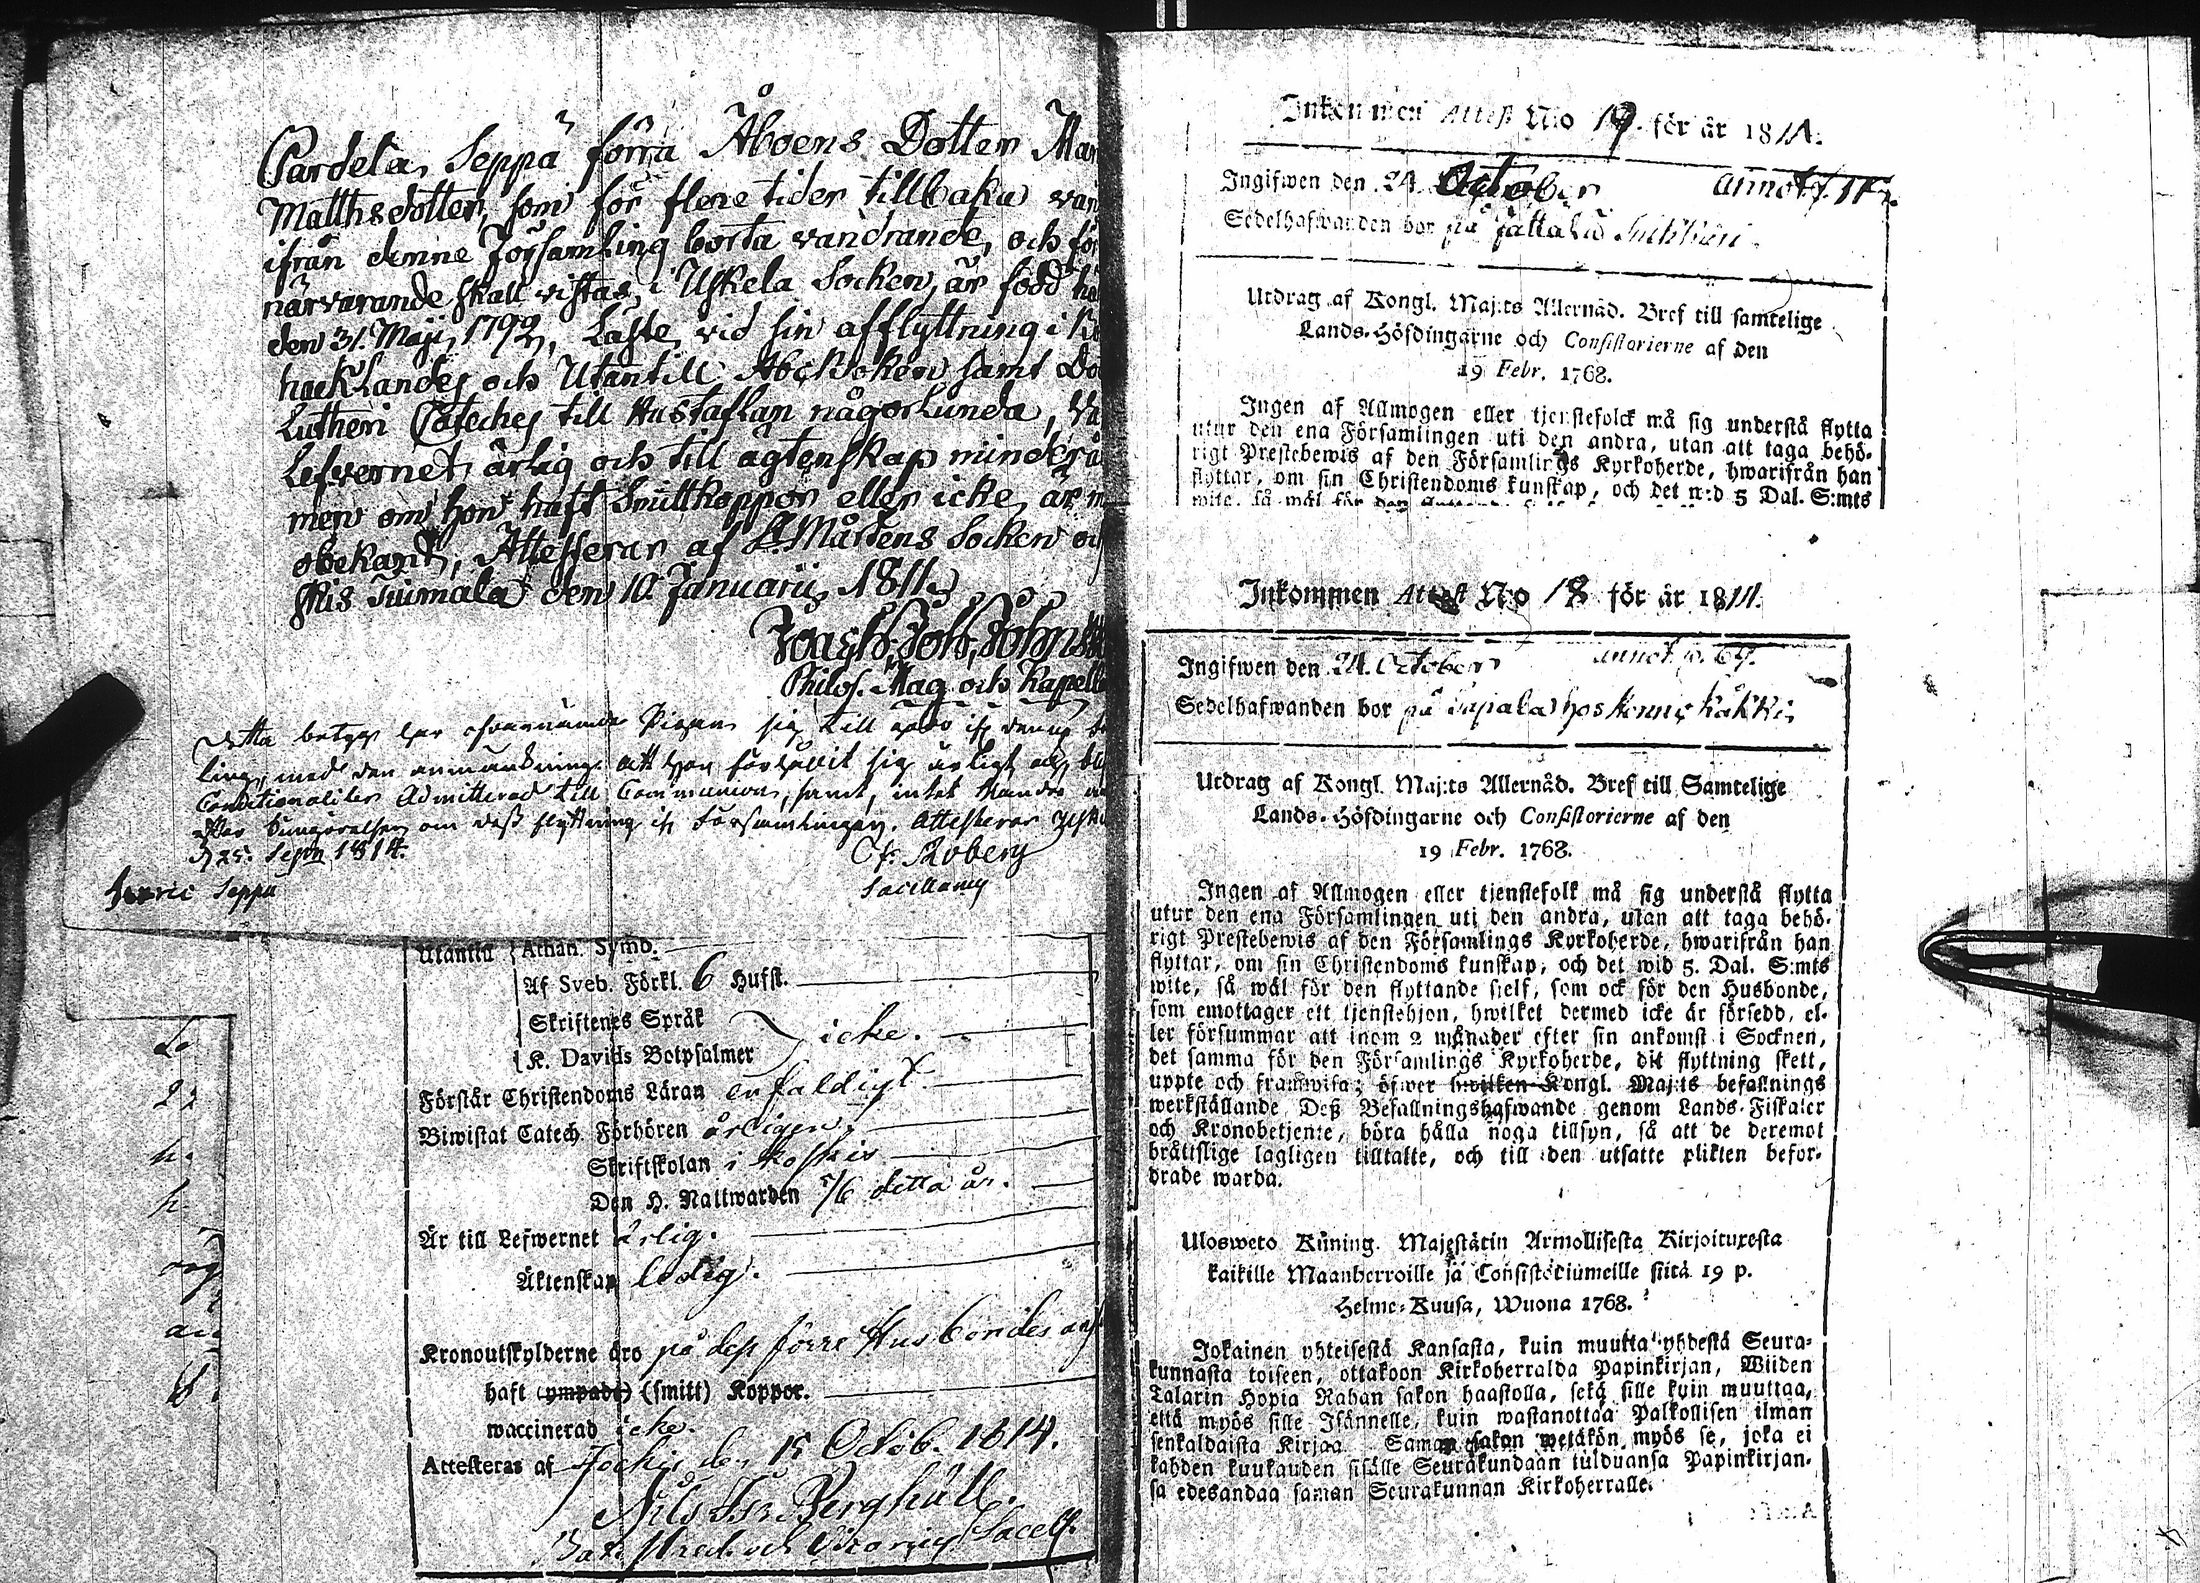 Pardela, Seppä förra Åboens Dotter Mar
Matthsdotter, som för flere tider tillbaka var
ifrån denne Församling borta vandrande, och för
närvarande skall vistas, i Uskela Socken, är född hä
den 31. Maji, 1792, Läste, vid sin afflyttning i
hackLandes och Utantill Abcboken samt Do
Lutheri Cateches till Hustaflan någorlunda,
Lefvernet ärlig och till ägtenskap minderå
men om hon haft Smittkoppor eller icke, är m
obekant, Attesterar af St. Mårtens Socken och
den 10. Januarii, 1811.
Philos. Mag. och Kapell
Detta betyg har ofvannämnde Pigan sig till
ling, med den anmärkning att hon förhållit sig ärligt och
Conditionaliter Admitterad till Communion, samt, intet
om dess flyttning ifr Församlingen. Attesterar
d 25. Sept 1814.
Roberg
Sacellanus
Seppä
Utantill Athan. Symb.
Af Sveb. Förkl. 6 Hufst.
Skriftenes Språk
icke.
K. Davids Botpsalmer
Förstår Christendoms Läran enfaldigt.
Biwistat Catech. Förhören årligen.
Skriftskolan i Koskis
Den H. Nattwarden 5/6 detta år.
Är till Lefwernet ärlig.
Äktenskap ledig.
Kronoutskylderne äro på dess förre Husbondes
haft (ympade) (smitt) Koppor.
waccinerad icke.
Attesteras af Jockis den 15 Octob. 1814.
Nils Berghäll.
Sacell.
Inkommen Attest No 19. för år 1814.
Ingifwen den 24. October annot
Sedelhafwanden bor på
Utdrag af Kongl. Maj:ts Allernåd. Bref till samtelige
Lands-Höfdingarne och Consistorierne af den
19 Febr. 1768.
Ingen af Allmogen eller tjenstefolck må sig understå flytta
utur den ena Församlingen uti den andra, utan att taga behö-
rigt Prestebewis af den Församlings Kyrkoherde, hwarifrån han
flyttar, om sin Christendoms kunskap, och det wid 5 Dal. S:mts
wite, så wäl för den
Inkommen Attest No 18 för år 1814.
Ingifwen den 24. October annot p. 69.
Sedelhafwanden bor på hos
Utdrag af Kongl. Maj:ts Allernåd. Bref till Samtelige
Lands-Höfdingarne och Consistorierne af den
19 Febr. 1768.
Ingen af Allmogen eller tjenstefolk må sig understå flytta
utur den ena Församlingen uti den andra, utan att taga behö-
rigt Prestebewis af den Församlings Kyrkoherde, hwarifrån han
flyttar, om sin Christendoms kunskap, och det wid 5. Dal. S:mts
wite, så wäl för den flyttande sielf, som ock för den Husbonde,
som emottager ett tjenstehjon, hwilket dermed icke är försedd, el-
ler försummar att inom 2 månader efter sin ankomst i Socknen,
det samma för den Församlings Kyrkoherde, dit flyttning skett,
uppte och framwisa; öfwer hwilken Kongl. Maj:ts befallnings
werkställande Deß Befallningshafwande genom Lands-Fiskaler
och Kronobetjente, böra hålla noga tillsyn, så att de deremot
bråttslige lagligen tilltalte, och till den utsatte plikten befor-
drade warda.
Ulosweto Küning. Majestätin Armollisesta Kirjoituxesta
kaikille Maanherroille ja Consistoriumeille siitä 19 p.
Helme-Kuusa, Wuona 1768.
Jokainen yhteisestä Kansasta, kuin muutta yhdestä Seura-
kunnasta toiseen, ottakoon Kirkoherralda Papinkirjan, Wiiden
Talarin Hopia Rahan sakon haastolla, sekä sille kuin muuttaa,
että myös sille Isännelle, kuin wastanottaa Palkollisen ilman
senkaldaista Kirjaa. Saman sakon wetäkön myös se, joka ei
kahden kuukauden sisälle Seurakundaan tulduansa Papinkirjan-
sa edesandaa saman Seurakunnan Kirkoherralle.